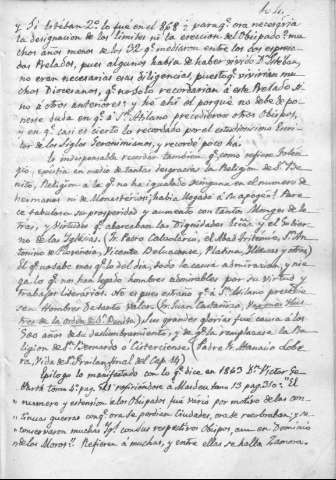 y Si Estéban 2º lo fué en el 868 ¿para q.e era necesaria
la designacion de los limites ni la ereccion del Obispado? mu-
chos años menos de los 32 q.e mediaron entre los dos espresa-
dos Prelados, pues algunos habia de haber vivido Dn Estéban,
no eran necesarias esas diligencias, puesto q.e vivirian mu-
chos Diocesanos, q.e no solo recordarian á este Prelado si-
no á otros anteriores; y he ahí el porqué no debe de po-
nerse duda en q.e á Sn Atilano precedieron otros Obispos,
y en q.e casi es cierto lo recordado por el estudiosísimo Escri-
tor de los Siglos Geronimianos, y recordé poco há.
Es indispensable recordar tambien q.e como refiere
existia en medio de tantas desgracias la Religion de Sn Be-
nito, Religion á la q.e no ha igualado ninguna en el numero de
hermanos ni de Monasterios; habia llegado á su apogeo! Pare-
ce fabulosa su prosperidad y aumento con tantos Monges de le-
tras, y Virtudes q.e abarcaban las Dignidades y el Gobier-
no de las Iglesias. (Sn Pedro Celestino, el Abad Tritemio, Sn An-
tonino de Florencia, Vicente Belvacense, Platina, Illescas y otros)
El q.e no sabe mas q.e lo del dia, todo le causa admiracion, y nie-
ga lo q.e nos han legado hombres admirables por su virtud y
trabajos literarios. No es pues estraño q.e á Sn Atilano precedie-
sen Hombres de tanto valor (Fr. Juan Varones Ilus-
tres de la orden de Sn Benito). Las grandes glorias fué causa á los
300 años de su deslumbramiento, y de q.e la remplazara la Re-
ligion de Sn Bernardo ó Cisterciense. (Padre Fr. Atanasio Lobe-
ra, Vida de Sn Froilan, final del Cap. 14)
Epilogo lo manifestado con lo q.e dice en 1863 Dn Victor Ge-
bhardt tomo 4º pag. 521 refiriendose á Masdeu tomo 13 pag. 310: "El
"numero y estension de los Obispados fué vario por motivo de las con-
"tinuas guerras con q.e ora se perdian Ciudades, ora se recobraban; y se
"conservaron muchas Yg.s con sus respectivos Obispos, aun en Dominio
"de los Moros". Refiere á muchas, y entre ellas se halla Zamora.